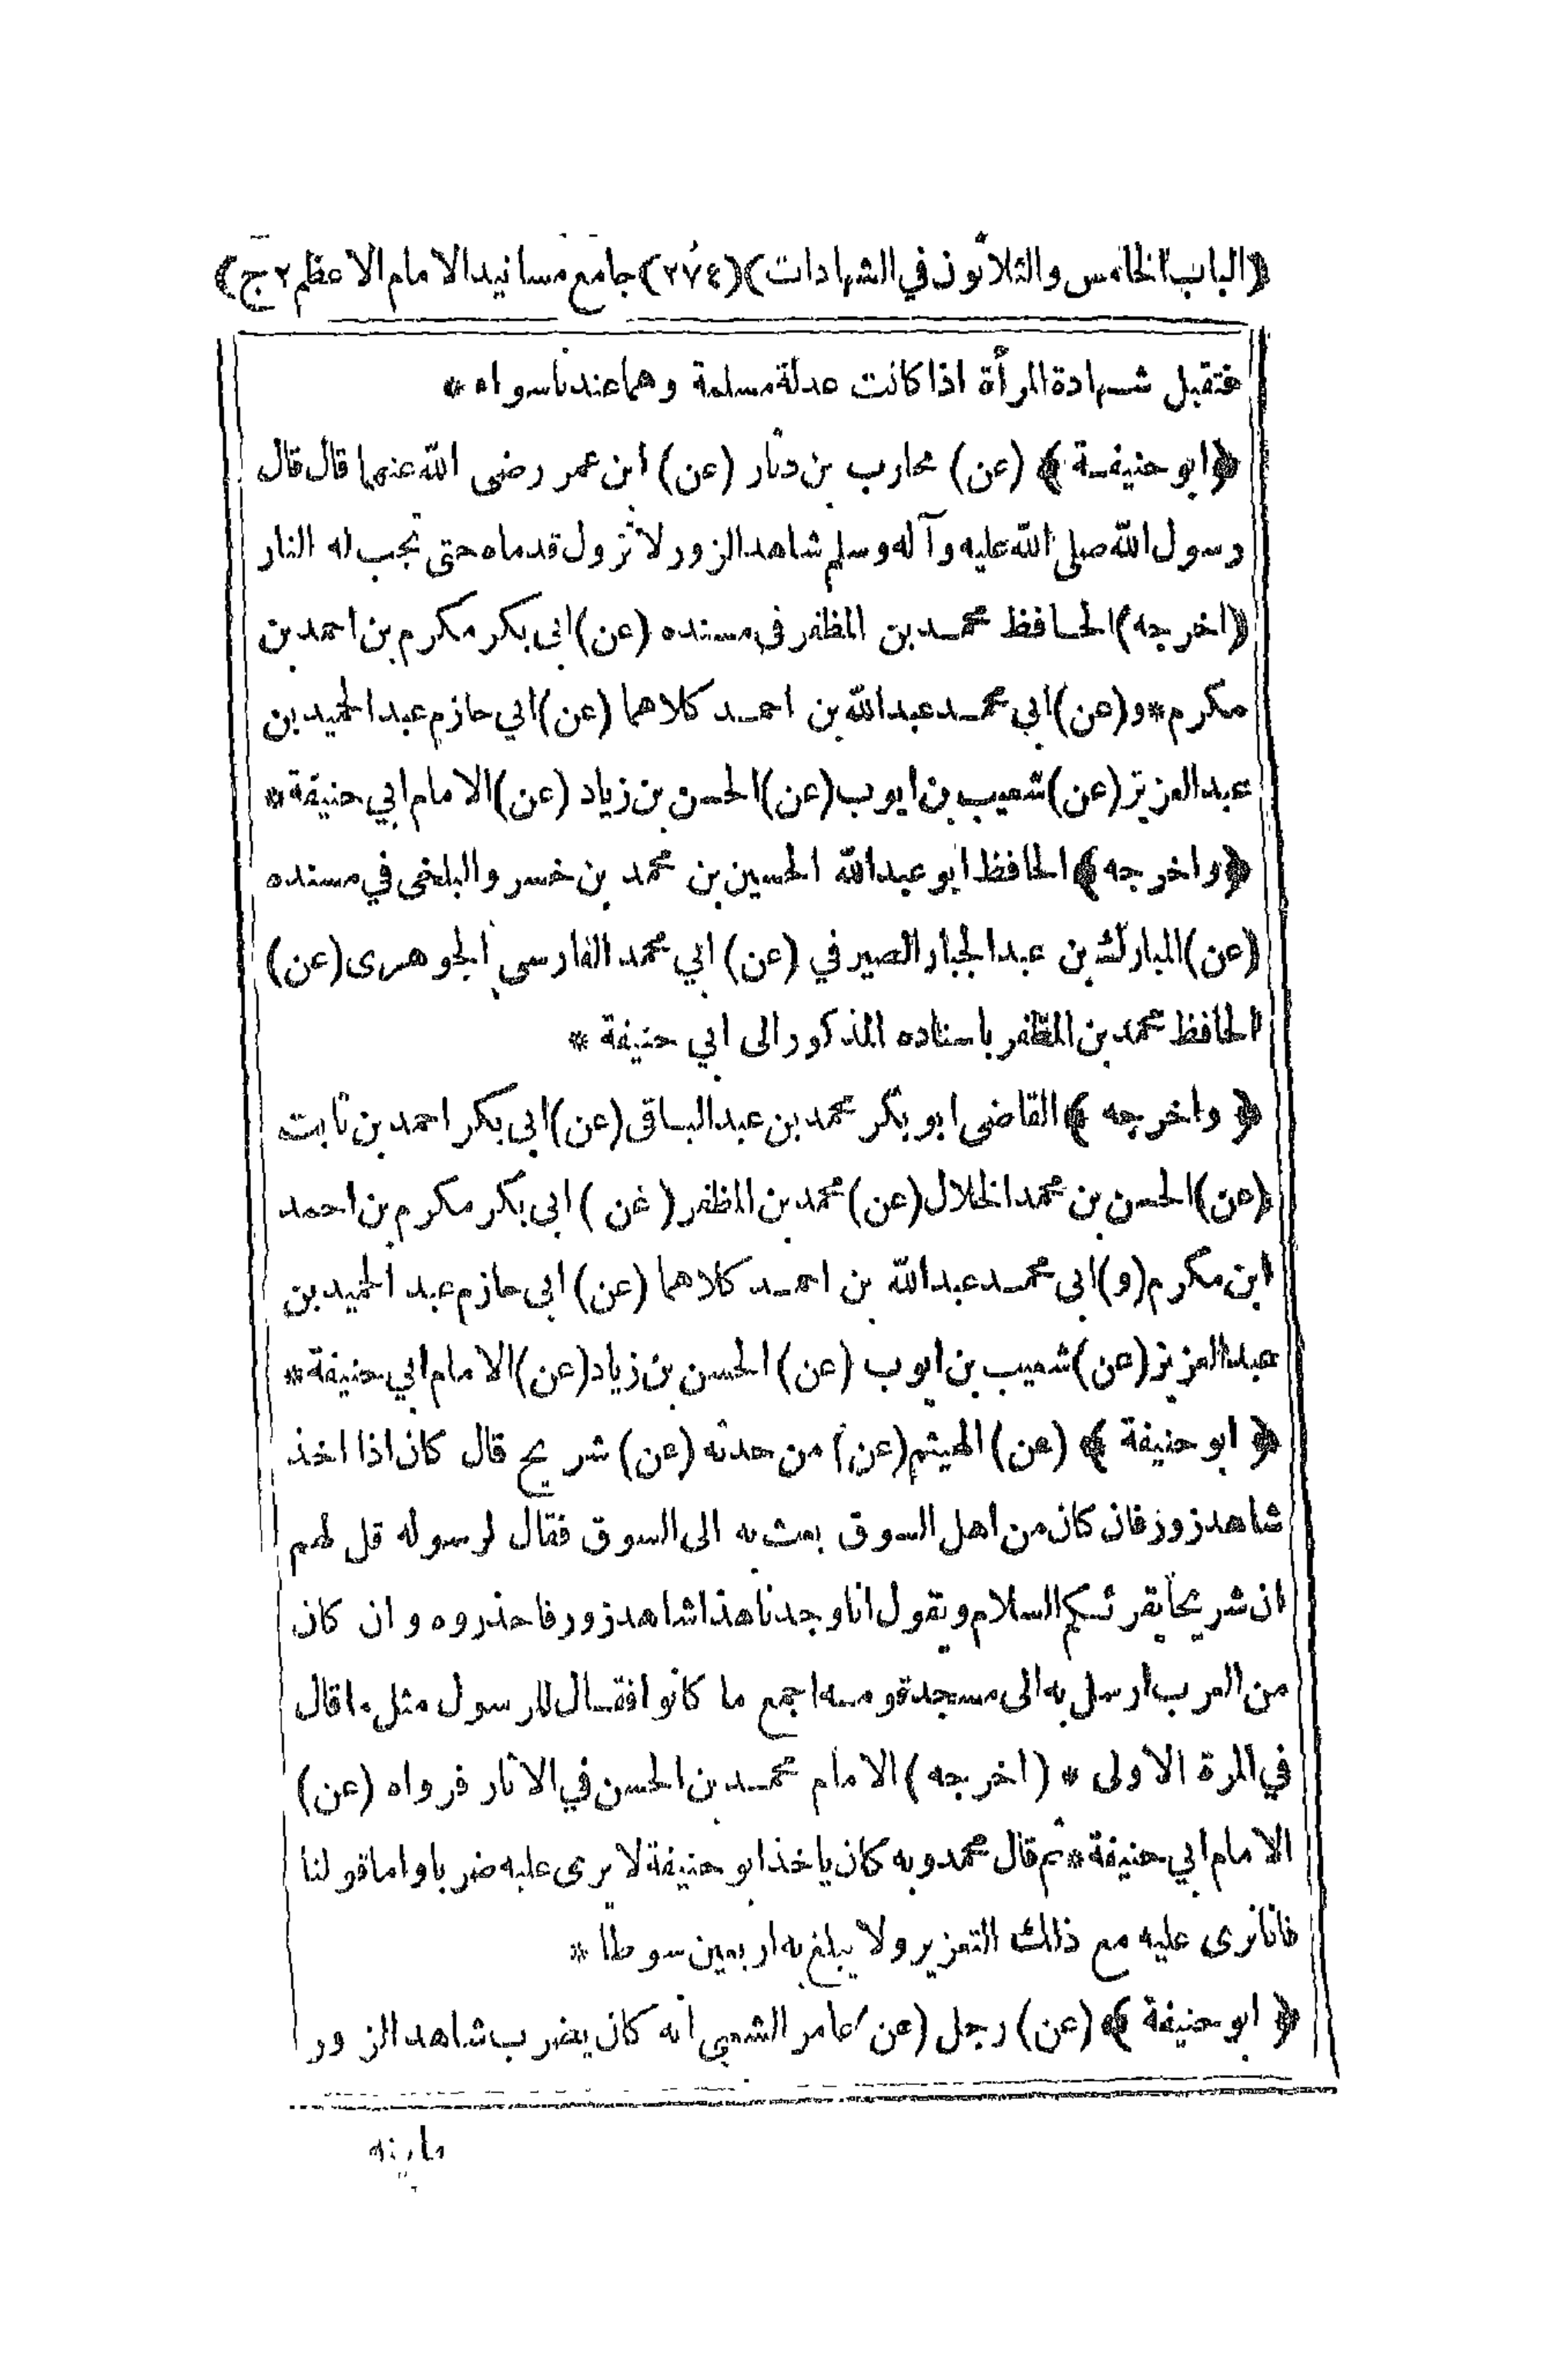 ﴿الباب الخامس والثلاثون في الشهادات﴾(٢٧٤)﴿جامع مسانيد الامام الاعظم ٢ ج﴾
فتقبل شهادة المرأة اذا كانت عدلة مسلمة وهما عندنا سواء *
﴿ابو حنيفة﴾ (عن) محارب بن دثار (عن) ابن عمر رضى الله عنهما قال قال
رسول الله صلى الله عليه وآله وسلم شاهد الزور لا تزول قدماه حتى تجب له النار
(اخرجه) الحافظ محمد بن المظفر في مسنده (عن) ابى بكر مكرم بن احمد بن
مكرم * و(عن) ابي محمد عبدالله بن احمد كلاهما (عن) ابي حازم عبدالحميد بن
عبدالعزيز (عن) شعيب بن ايوب (عن) الحسن بن زياد (عن) الامام ابي حنيفة *
﴿واخرجه﴾ الحافظ ابو عبدالله الحسين بن محمد بن خسرو البلخى في مسنده
(عن) المبارك بن عبدالجبار الصيرفي (عن) ابي محمد الفارسي الجوهرى (عن)
الحافظ محمد بن المظفر باسناده المذكور الى ابي حنيفة *
﴿واخرجه﴾ القاضى ابو بكر محمد بن عبدالباقى (عن) ابى بكر احمد بن ثابت
(عن) الحسن بن محمد الخلال (عن) محمد بن المظفر (عن) ابى بكر مكرم بن احمد
ابن مكرم (و) ابى محمد عبدالله بن احمد كلاهما (عن) ابي حازم عبد الحميد بن
عبدالعزيز (عن) شعيب بن ايوب (عن) الحسن بن زياد (عن) الامام ابي حنيفة *
﴿ابو حنيفة﴾ (عن) الهيثم (عن) من حدثه (عن) شريح قال كان اذا اخذ
شاهد زور فان كان من اهل السوق بعث به الى السوق فقال لرسوله قل لهم
ان شريحا يقرئكم السلام ويقول انا وجدنا هذا شاهد زور فاحذروه و ان كان
من العرب ارسل به الى مسجد قومه اجمع ما كانوا فقال للرسول مثل ما قال
في المرة الاولى * (اخرجه) الامام محمد بن الحسن في الاثار فرواه (عن)
الامام ابي حنيفة * ثم قال محمد وبه كان ياخذ ابو حنيفة لا يرى عليه ضربا واما قولنا
فانا نرى عليه مع ذلك التعزير ولا يبلغ به اربعين سوطا *
﴿ابو حنيفة﴾ (عن) رجل (عن) عامر الشعبي انه كان يضرب شاهد الزور